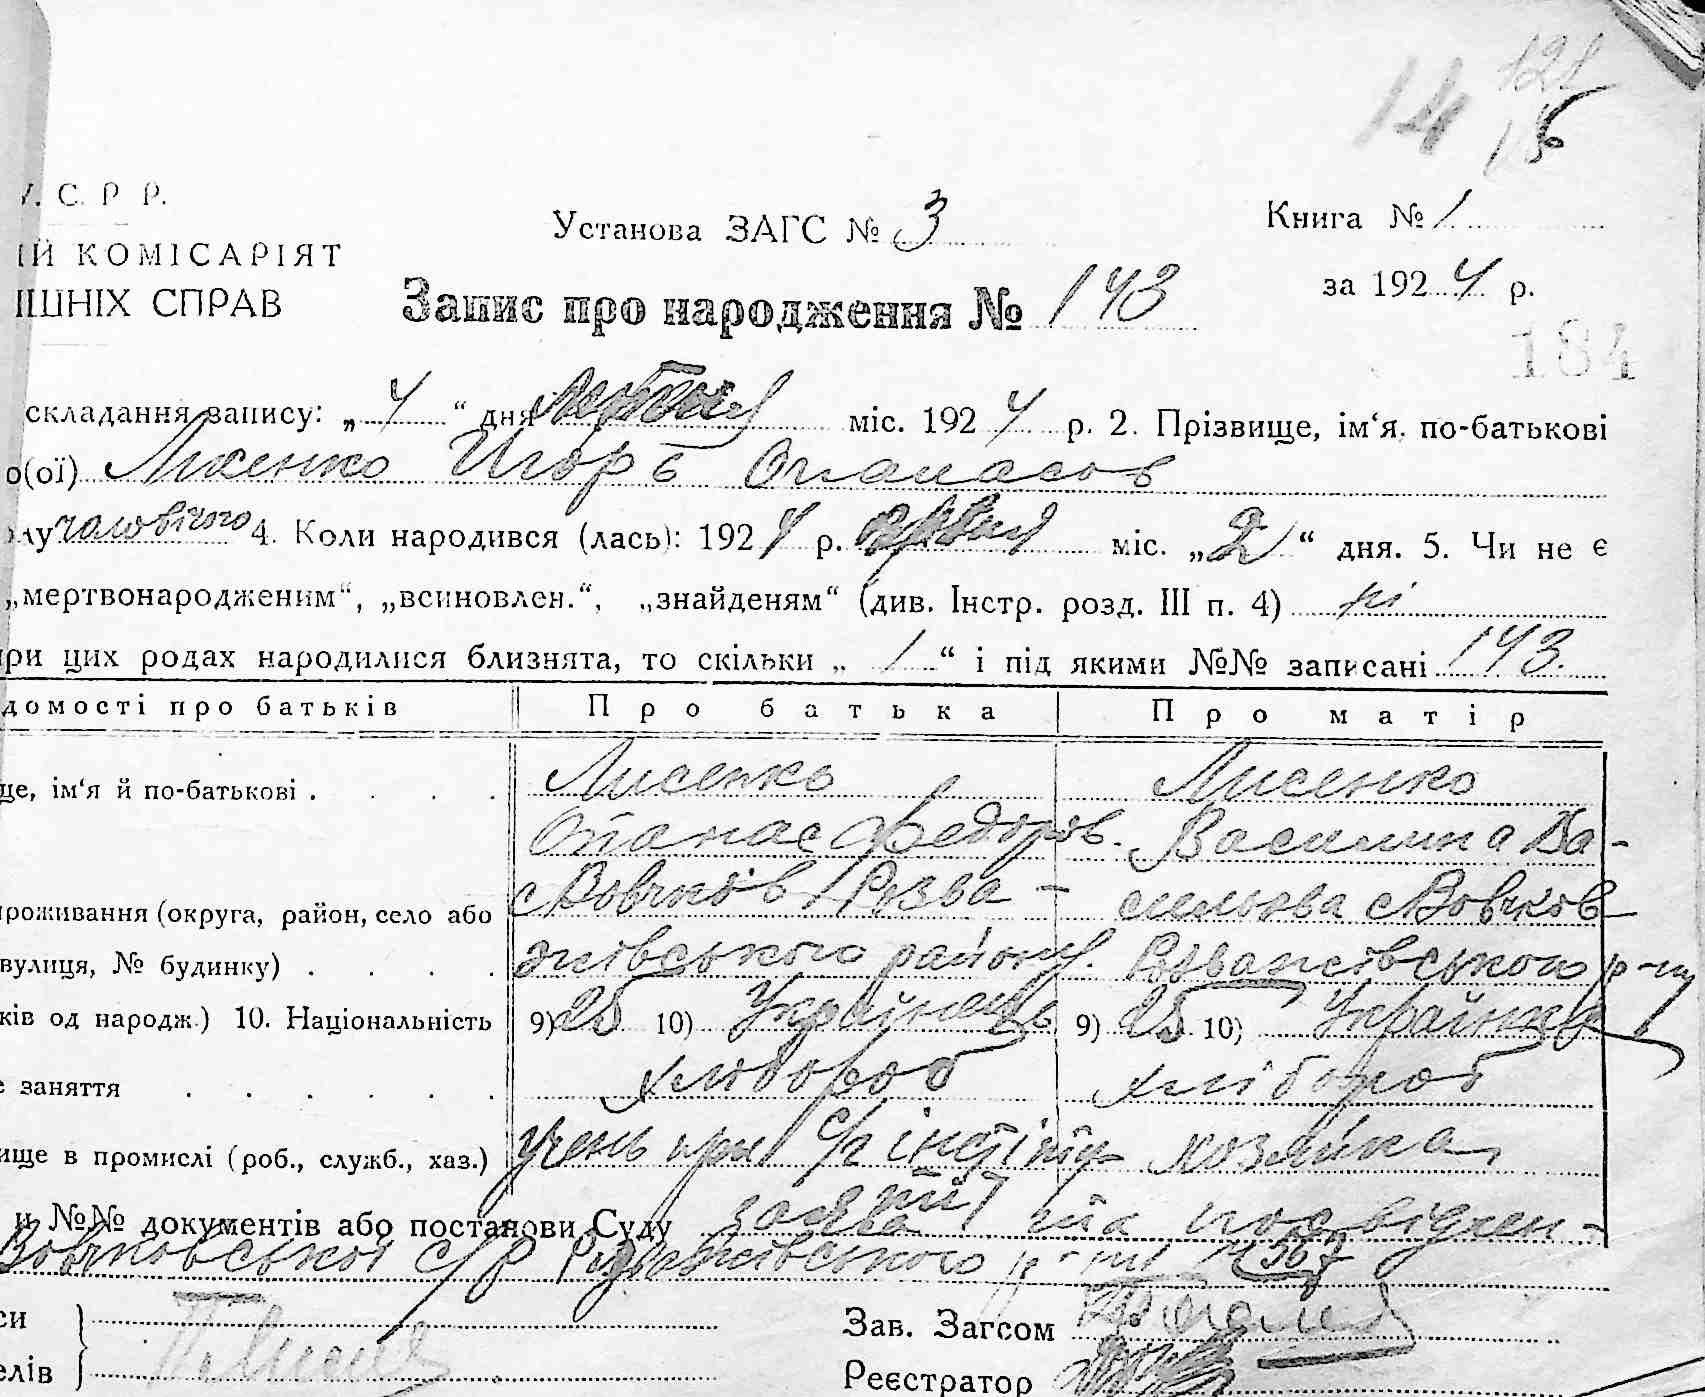 121
14 15
У. С. Р Р.
ІЙ КОМІСАРІЯТ
ІШНІХ СПРАВ
Установа ЗАГС № 3
Книга № 1
за 1924 р.
Запис про народження № 143
184
складання запису: „ 4 “ дня міс. 1924 р. 2. Прізвище, ім‘я, по-батькові
о(ої) Лисенко Игорь Опанасов
лу чоловічого 4. Коли народився (лась): 1924 р. міс. „ 2 “ дня. 5. Чи не є
„мертвонародженим“, „всиновлен.“, „знайденям“ (див. Інстр. розд. III п. 4) ні
при цих родах народилися близнята, то скільки „ 1 “ і під якими №№ записані 143.
домості про батьків Про батька Про матір
ще, ім‘я й по-батькові . . . . Лисенко Лисенко
Опанас Федоров. Василина Ва-
проживання (округа, район, село або с Вовчків Розва- сильова с Вовчков
вулиця, № будинку) . . . . жівського району. Розважівського р-ну
ків од народж.) 10. Національність 9) 25 10) Українець 9) 25 10) Українка
є заняття . . . . . . хлібороб хлібороб
ище в промислі (роб., служб., хаз.) учень при с/г інстіту хозяйка
и №№ документів або постанови Суду заява та посвідчен-
Вовчковської с/р Розважівського р-ну № 567
си
елів
Зав. Загсом
Реєстратор